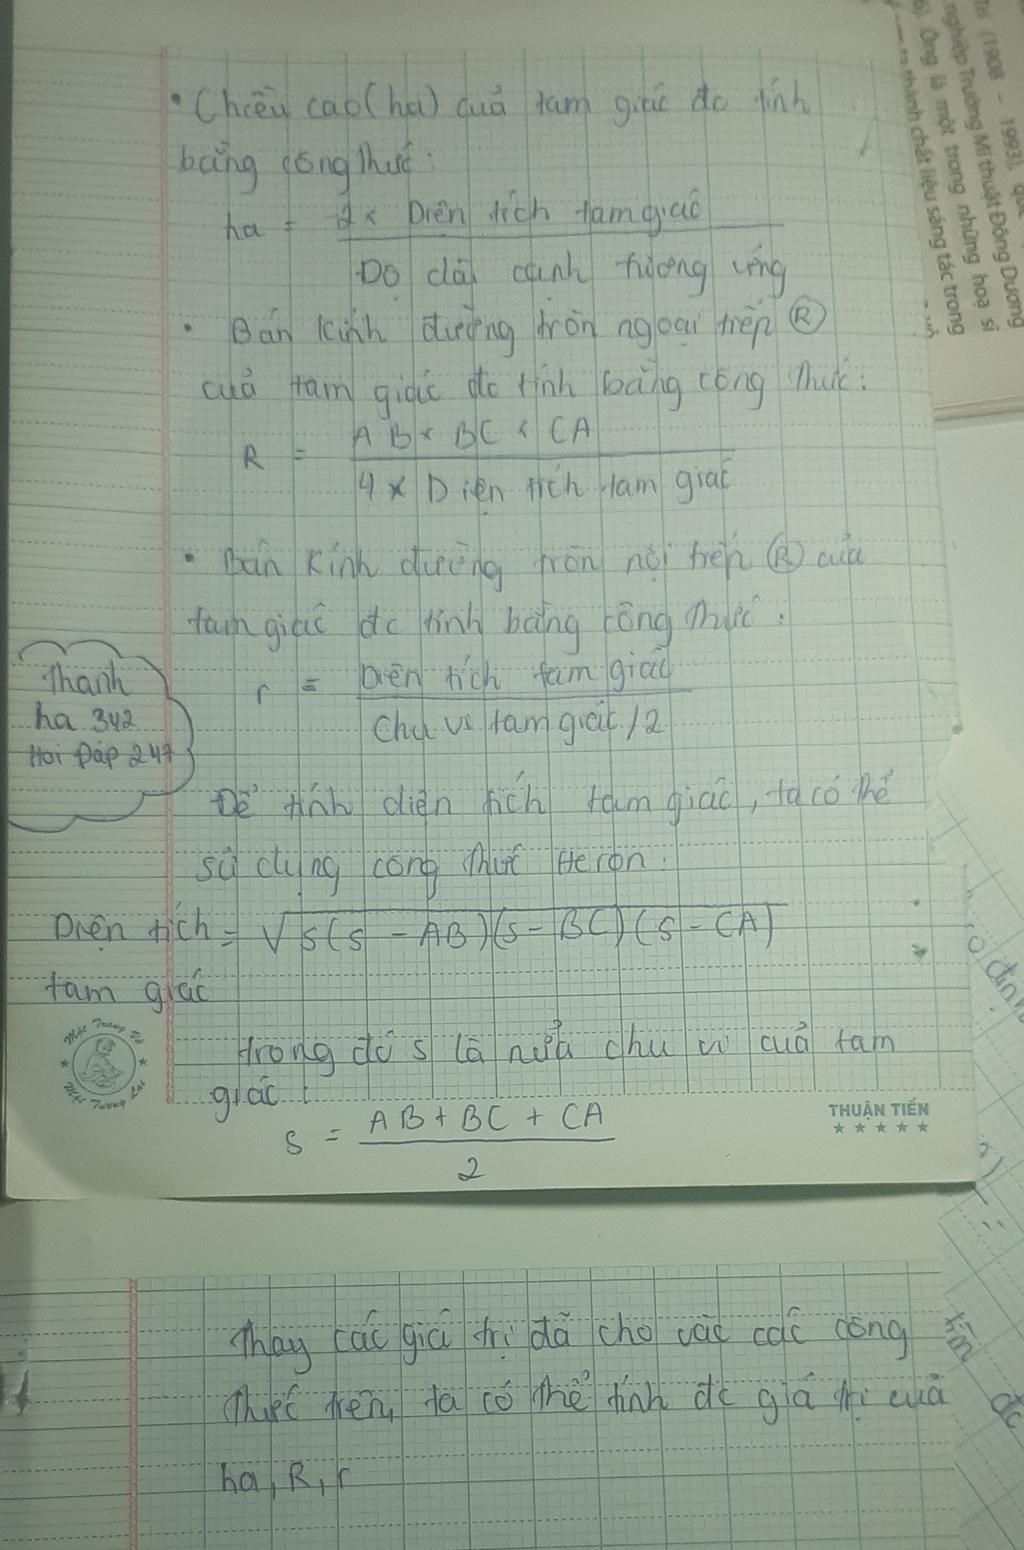 Trí (1908 - 1993), quê
nghiệp Trường Mĩ thuật Đông Dương
Ông là một trong những hoạ sĩ
thành chất liệu sáng tác trong
• Chiều cao (ha) của tam giác đc tính
bằng công thức:
ha = 2 × Diện tích tam giác
Độ dài cạnh tương ứng
• Bán kính đường tròn ngoại tiếp Ⓡ
của tam giác đc tính bằng công thức:
R = AB × BC × CA
4 × Diện tích tam giác
• Bán kính đường tròn nội tiếp Ⓡ của
tam giác đc tính bằng công thức:
r = Diện tích tam giác
Chu vi tam giác / 2
Thanh
ha 342
Hoi Đáp 247
Để tính diện tích tam giác, ta có thể
sử dụng công thức Heron:
Diện tích = √s(s - AB)(s - BC)(s - CA)
tam giác
trong đó s là nửa chu vi của tam
giác:
s = AB + BC + CA
2
Một Trang Vở
Một Tương Lai
THUẬN TIẾN
Thay các giá trị đã cho vào các công
thức trên, ta có thể tính đc giá trị của
ha, R, r